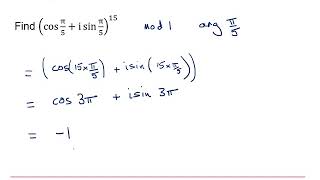 Find (cos π/5 + i sin π/5)^15 mod 1 arg π/5
= (cos(15×π/5) + isin(15×π/5))
= cos 3π + i sin 3π
= -1